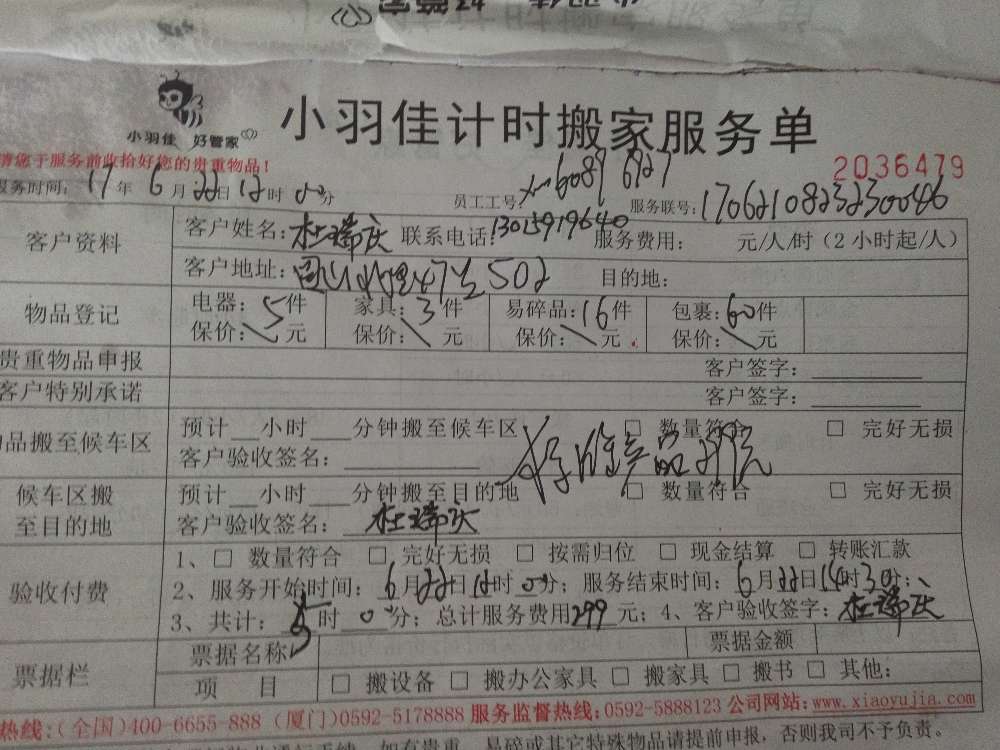 小羽佳 好管家
小羽佳计时搬家服务单
请您于服务前收拾好您的贵重物品!
2036479
服务时间: 17年6月22日12时00分 员工工号: 60896927 服务联号:
客户资料 客户姓名: 杜瑞庆 联系电话: 13015919640 服务费用: 元/人/时(2小时起/人)
客户地址: 47 502 目的地:
物品登记 电器: 5件 家具: 3件 易碎品: 16件 包裹: 60件
保价: 元 保价: 元 保价: 元 保价: 元
贵重物品申报 客户签字:
客户特别承诺 客户签字:
物品搬至候车区 预计 小时 分钟搬至候车区 □ 数量符合 □ 完好无损
客户验收签名:
候车区搬至目的地 预计 小时 分钟搬至目的地 □ 数量符合 □ 完好无损
客户验收签名: 杜瑞庆
验收付费 1、□ 数量符合 □ 完好无损 □ 按需归位 □ 现金结算 □ 转账汇款
2、服务开始时间: 6月22日12时0分; 服务结束时间: 6月22日14时30分;
3、共计: 时0分; 总计服务费用299元; 4、客户验收签字: 杜瑞庆
票据栏 票据名称 票据金额
项 目 □ 搬设备 □ 搬办公家具 □ 搬家具 □ 搬书 □ 其他:
热线:(全国)400-6655-888 (厦门)0592-5178888 服务监督热线:0592-5888123 公司网站:www.xiaoyujia.com
如有贵重、易碎或其它特殊物品请提前申报,否则我司不予负责。